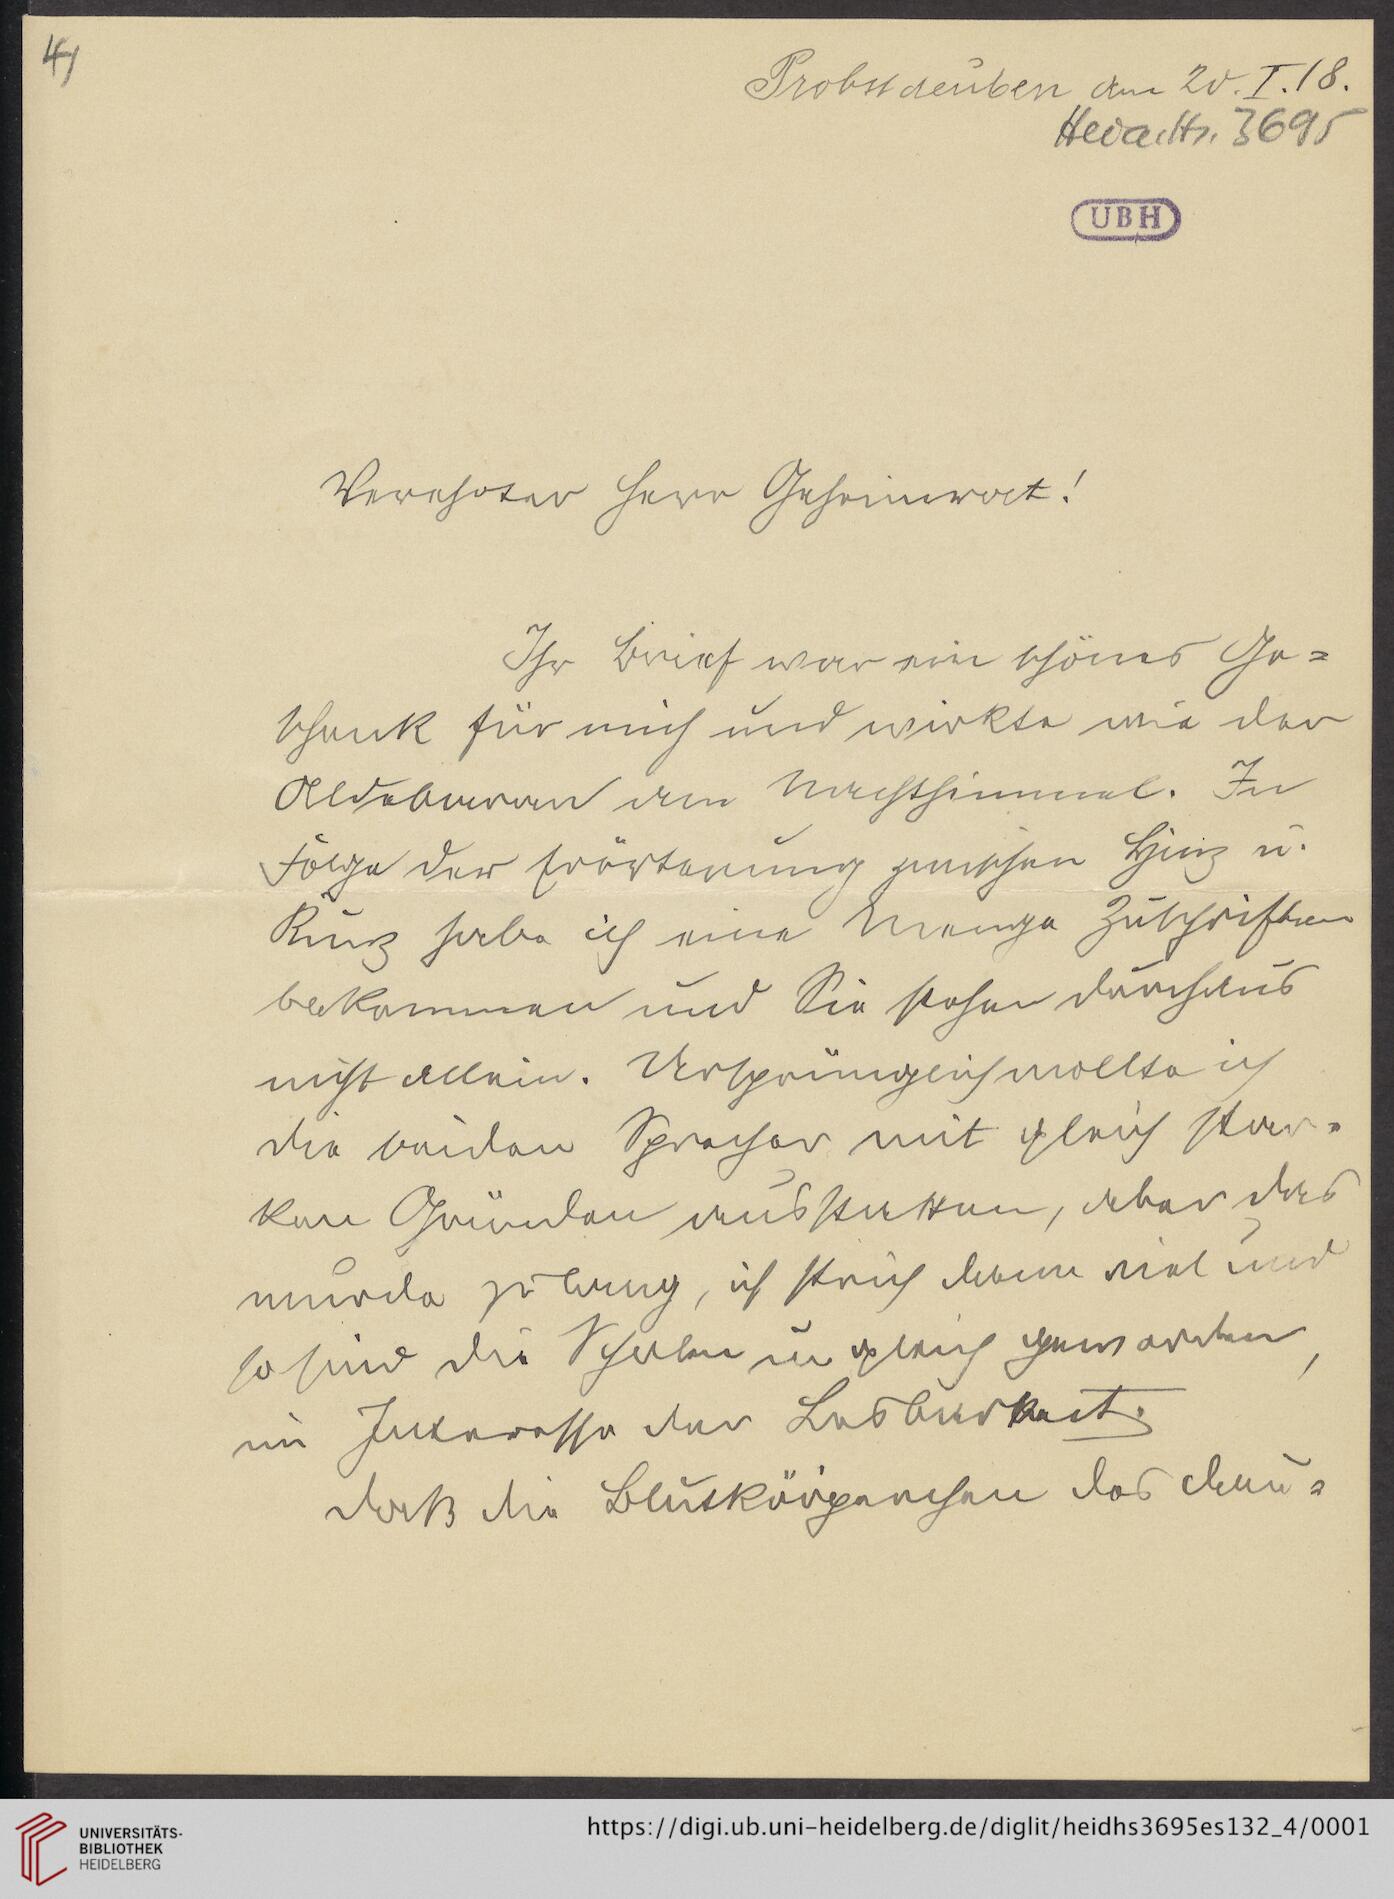 4)
Probstdeuben am 20.I.18.
Heid. Hs. 3695
UBH
Verehrter Herr Geheimrat!
Ihr Brief war ein schönes Ge=
schenk für mich und wirkte wie der
Aldebaran am Nachthimmel. In
Folge der Erörterung zwischen Hinz u.
Kunz habe ich eine Menge Zuschriften
bekommen und Sie stehen durchaus
nicht allein. Ursprünglich wollte ich
die beiden Sprecher mit gleich star=
ken Gründen ausstatten, aber das
wurde zu lang, ich strich dann viel und
so sind die Schalen ungleich geworden,
im Interesse der Lesbarkeit.
daß die Blutkörperchen des deu=
UNIVERSITÄTS-
BIBLIOTHEK
HEIDELBERG
https://digi.ub.uni-heidelberg.de/diglit/heidhs3695es132_4/0001